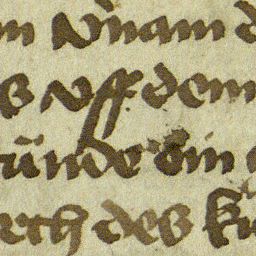 m vnam d
s uff dem
ünde bin
rch des kü